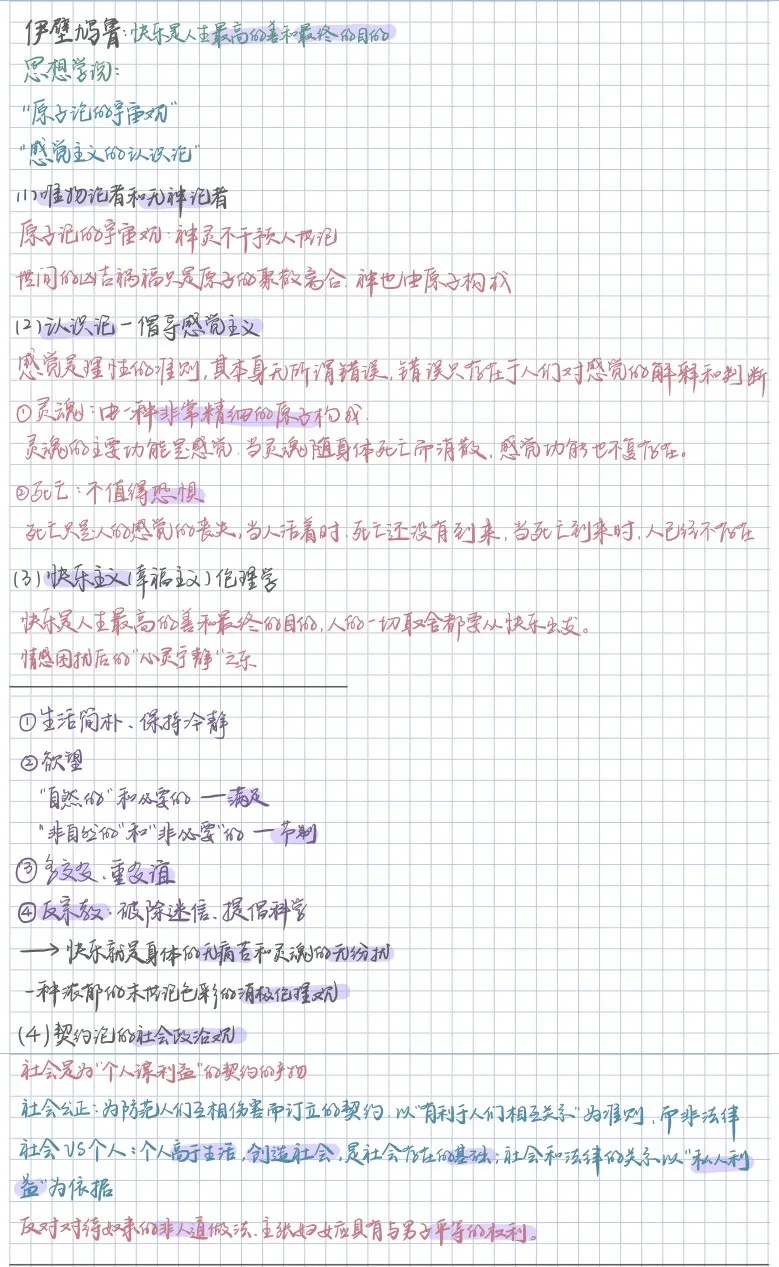 伊壁鸠鲁:快乐是人生最高的善和最终的目的
思想学说:
"原子论的宇宙观"
"感觉主义的认识论"
(1)唯物论者和无神论者
原子论的宇宙观:神灵不干预人世论
世间的凶吉祸福只是原子的聚散离合.神也由原子构成
(2)认识论-倡导感觉主义
感觉是理性的准则,其本身无所谓错误,错误只存在于人们对感觉的解释和判断
①灵魂:由一种非常精细的原子构成.
灵魂的主要功能是感觉.当灵魂随身体死亡而消散,感觉功能也不复存在。
②死亡:不值得恐惧
死亡只是人的感觉的丧失,当人活着时.死亡还没有到来,当死亡到来时,人已经不存在
(3)快乐主义(幸福主义)伦理学
快乐是人生最高的善和最终的目的,人的一切取舍都要从快乐出发。
情感困扰后的"心灵宁静"之乐
①生活简朴、保持冷静
②欲望
"自然的"和必要的—满足
"非自然的"和"非必要"的—节制
③多交友、重友谊
④反宗教:破除迷信、提倡科学
→快乐就是身体的无病苦和灵魂的无纷扰
一种浓郁的末世论色彩的消极伦理观
(4)契约论的社会政治观
社会是为"个人谋利益"的契约的产物
社会公正:为防范人们互相伤害而订立的契约.以"有利于人们相互关系"为准则,而非法律
社会VS个人:个人高于生活,创造社会,是社会存在的基础;社会和法律的关系以"私人利
益"为依据
反对对待奴隶的非人道做法.主张妇女应具有与男子平等的权利。